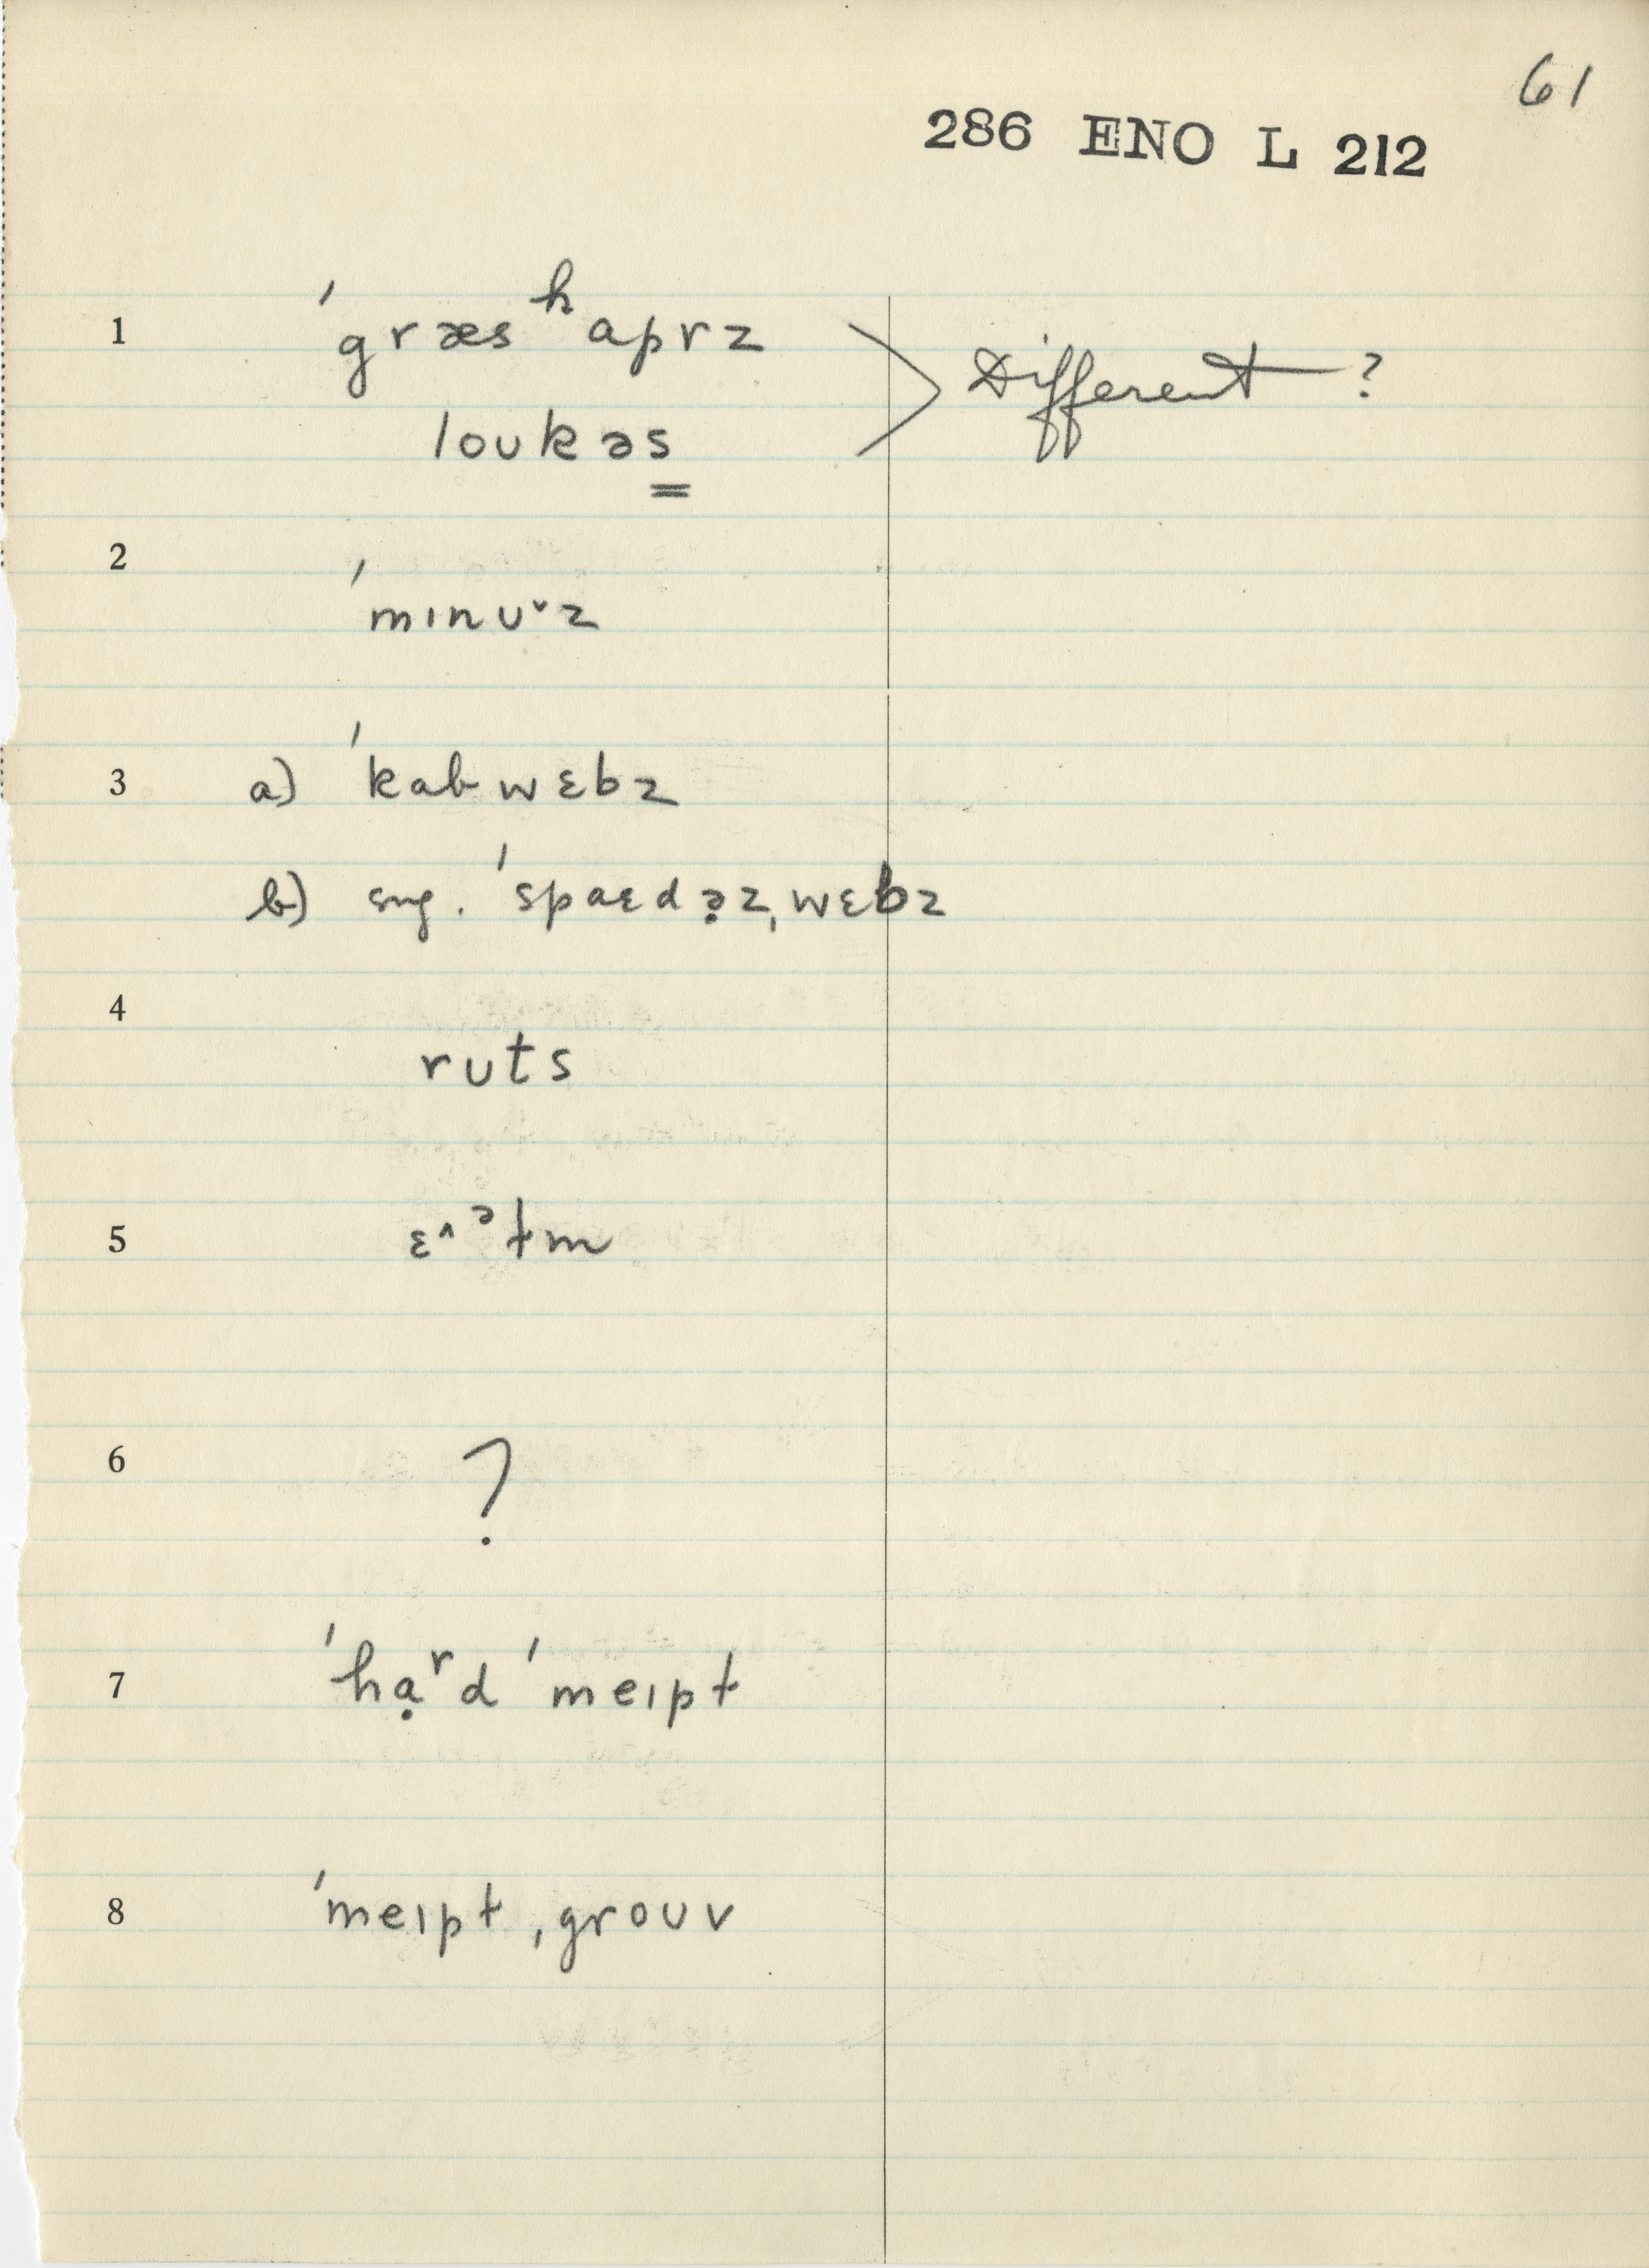 61
286 ENO L 212
1 ˈgræsʰaprz
loukəs
Different ?
2 ˈminᴜ˅z
3 a) ˈkabwɛbz
b) sug. ˈspaɛdə̣zˌwɛbz
4 ruts
5 ɛ^ᵊɫm
6 ?
7 ˈhạʳd ˈmeɪpɫ
8 ˈmeɪpɫ ˌgroᴜv